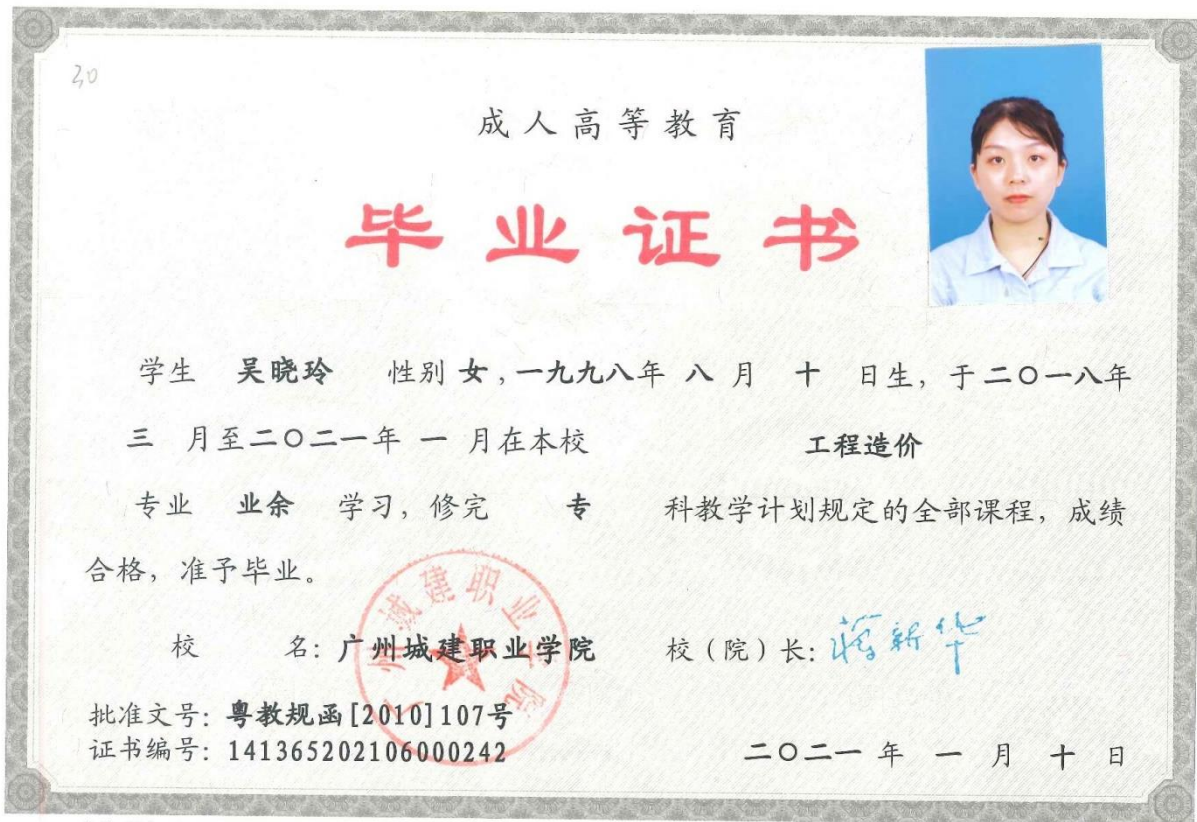 30
成人高等教育
毕业证书
学生 吴晓玲 性别 女,一九九八年 八 月 十 日生，于二〇一八年
三 月至二〇二一年 一 月在本校 工程造价
专业 业余 学习，修完 专 科教学计划规定的全部课程，成绩
合格，准予毕业。
广州城建职业学院
校 名：广州城建职业学院 校（院）长：蒋新华
批准文号：粤教规函[2010]107号
证书编号：141365202106000242 二〇二一 年 一 月 十 日